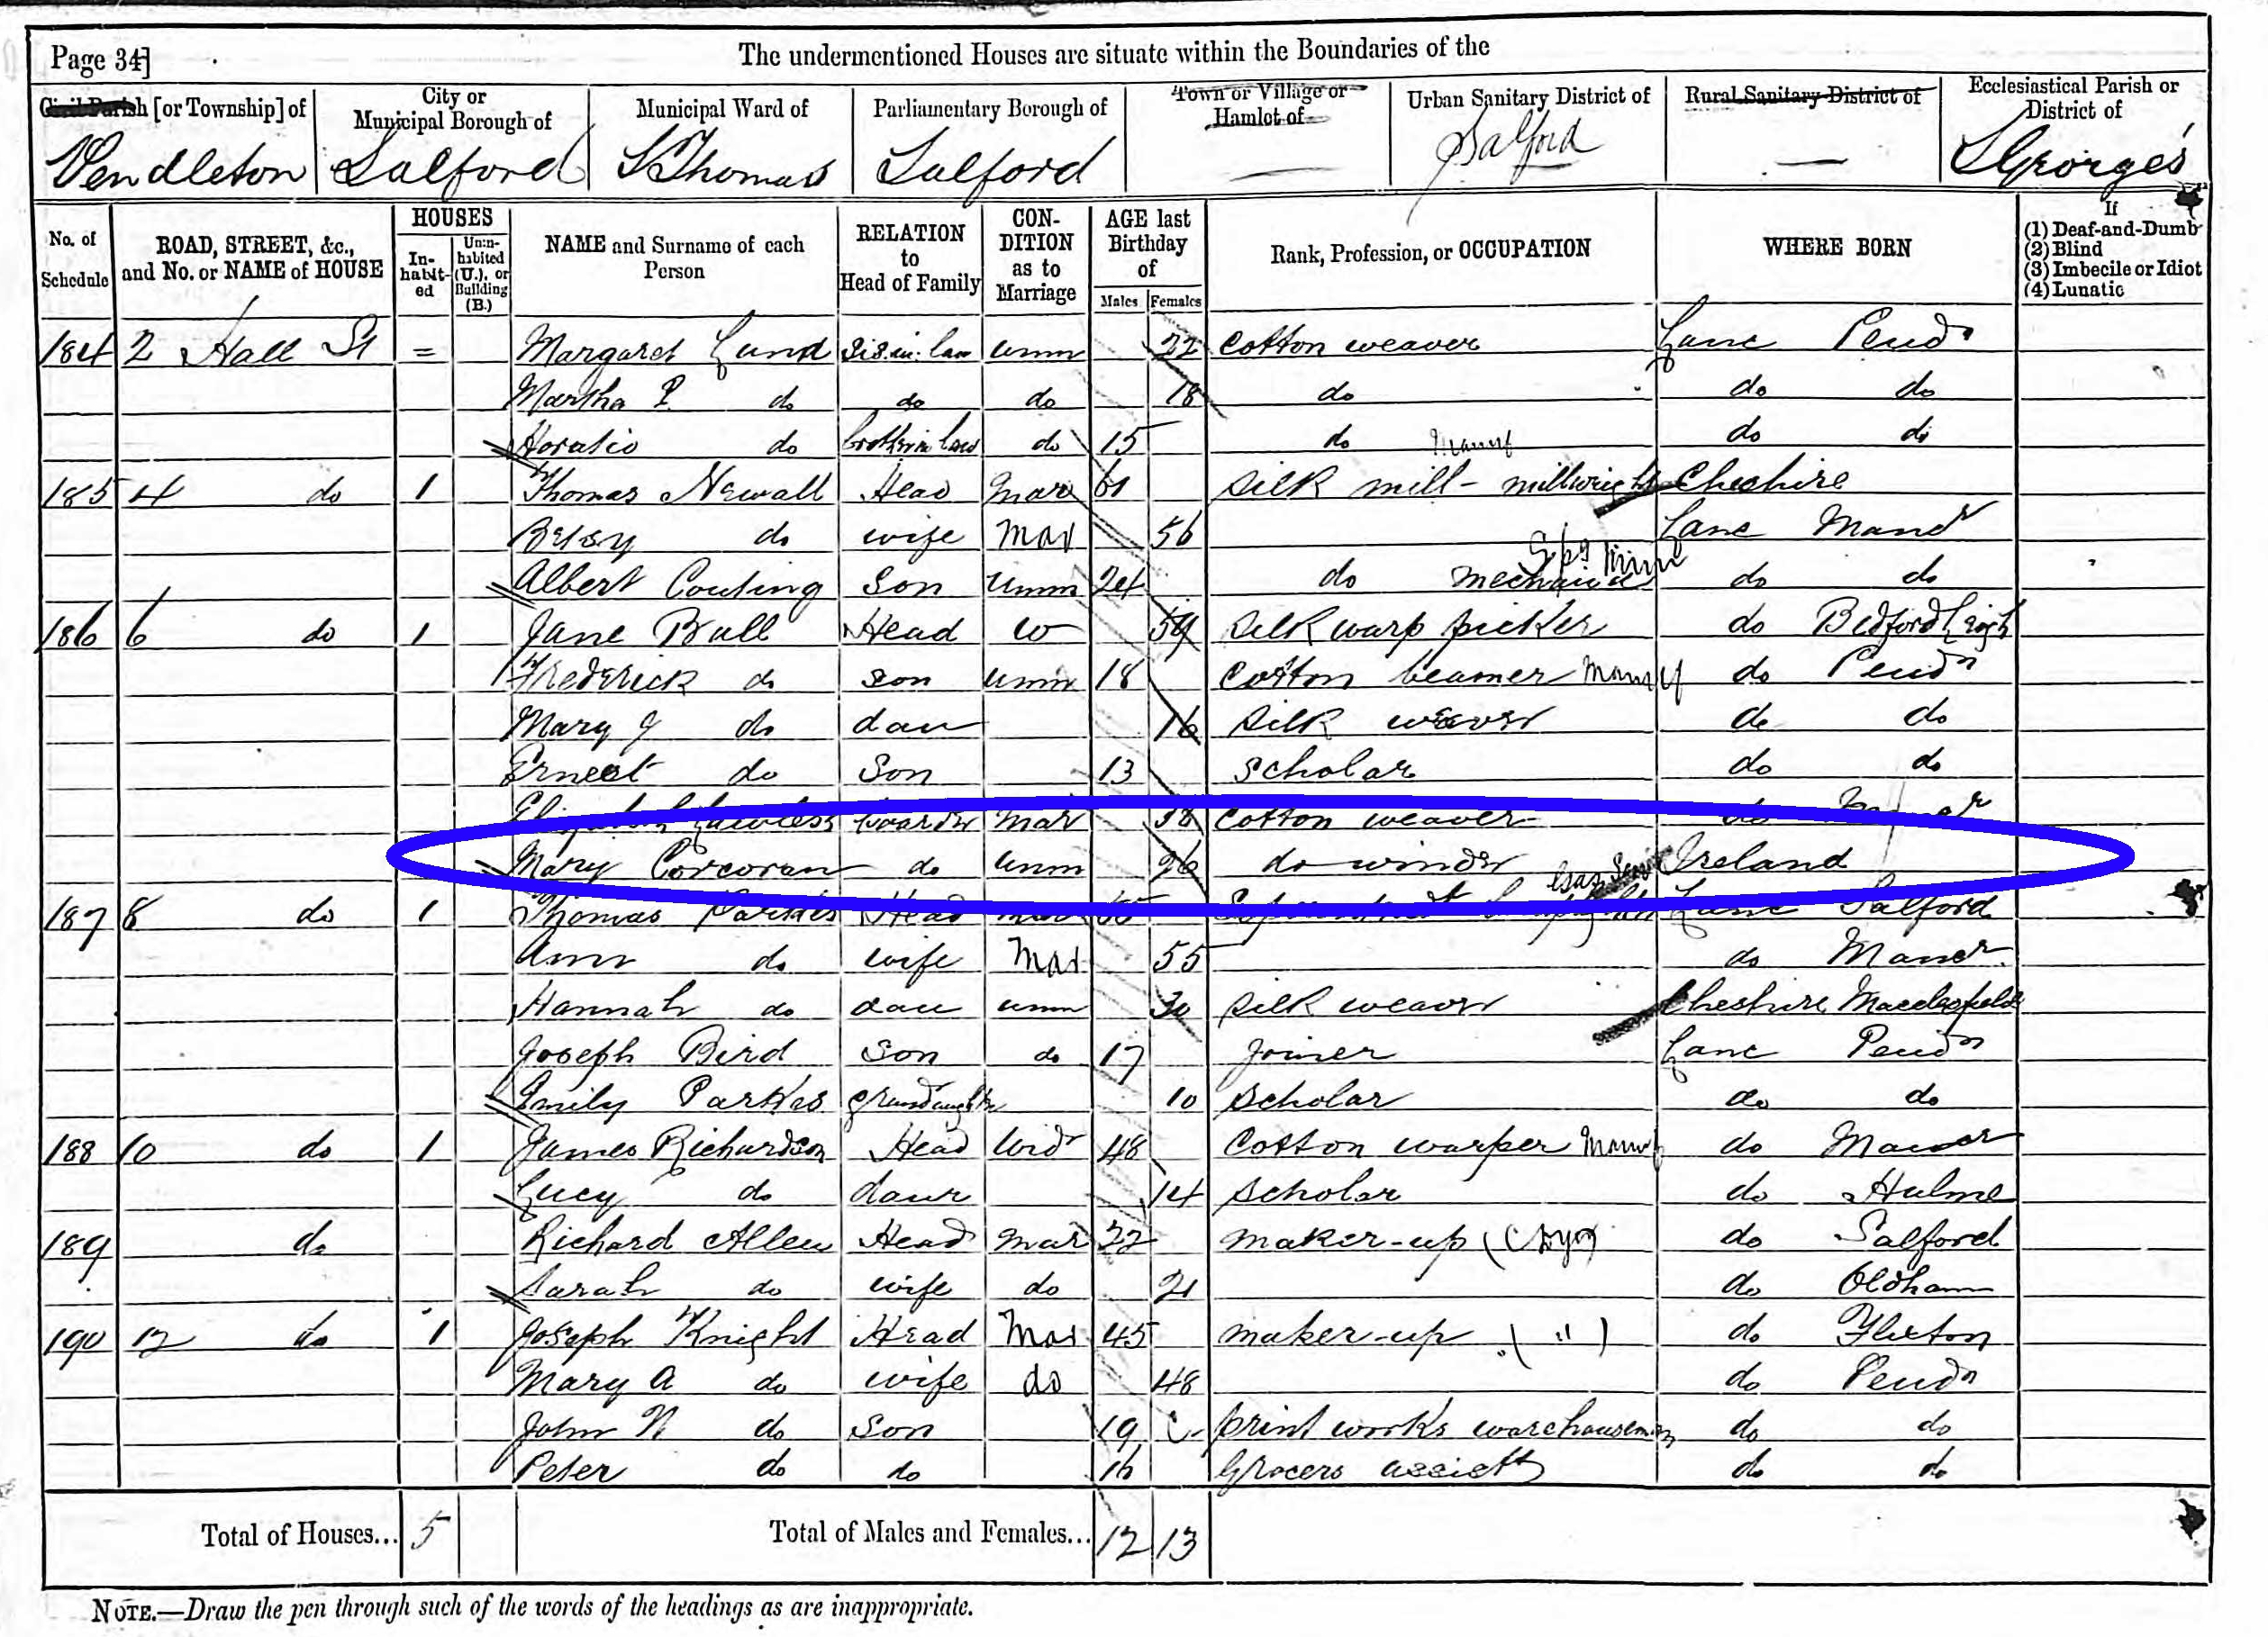 Page 34]
The undermentioned Houses are situate within the Boundaries of the
Civil Parish [or Township] of City or Municipal Borough of Municipal Ward of Parliamentary Borough of Town or Village or Hamlet of Urban Sanitary District of Rural Sanitary District of Ecclesiastical Parish or District of
Pendleton Salford St Thomas Salford — Salford — St George's
No. of Schedule ROAD, STREET, &c., and No. or NAME of HOUSE HOUSES In-habit-ed Unin-habited (U.), or Building (B.) NAME and Surname of each Person RELATION to Head of Family CON-DITION as to Marriage AGE last Birthday of Males Females Rank, Profession, or OCCUPATION WHERE BORN If (1) Deaf-and-Dumb (2) Blind (3) Imbecile or Idiot (4) Lunatic
184 2 Hall St = Margaret Lund Sis. in. law unm 22 Cotton weaver Lanc Pend
Martha P. do do do 18 do do do
Horatio do brother in law do 15 do Manuf do do
185 4 do 1 Thomas Newall Head Mar 61 Silk mill - millwright Cheshire
Betsy do wife Mar 56 Lanc Manr
Albert Son Unm 24 do mechanic do do
186 6 do 1 Jane Bull Head W 59 Silk warp picker do Bedford Leigh
Frederick do Son unm 18 Cotton beamer Manuf do Pendn
Mary J do dau 16 Silk weaver do do
Ernest do Son 13 Scholar do do
Elizabeth Lawless boarder Mar 38 Cotton weaver do
Mary Corcoran do unm 26 do winder Ireland
187 8 do 1 Thomas Parkes Head Mar Lanc Salford
Ann do wife Mar 55 do Mancr.
Hannah do dau unm 30 Silk weaver Cheshire Macclesfield
Joseph Bird Son do 17 joiner Lanc Pendn
Emily Parkes grandaughter 10 Scholar do do
188 10 do 1 James Richardson Head Widr 48 Cotton warper Manuf do Mancr
Lucy do daur 14 Scholar do Hulme
189 do Richard Allen Head Mar 22 maker-up do Salford
Sarah do wife do 21 do Oldham
190 12 do 1 Joseph Knight Head Mar 45 maker-up ( " ) do Flixton
Mary A do wife do 48 do Pendn
John N do Son 19 print works warehouseman do do
Peter do do 16 Grocers assistt do do
Total of Houses... 5 Total of Males and Females... 12 13
NOTE.—Draw the pen through such of the words of the headings as are inappropriate.